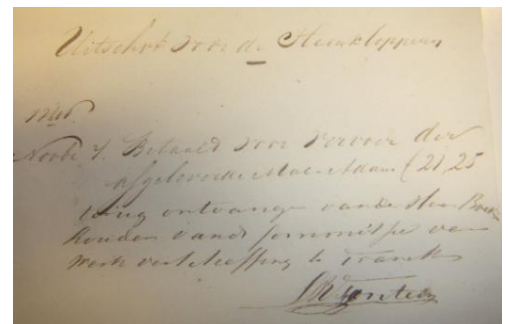 Uitschot voor de Steenkloppers
Novbr 7. Betaald voor vervoer der
afgeleverde Mac Adam f 21,25
terug ontvangen van de Heer Boek
houder van de Commissie van
werkverschaffing te Franeker